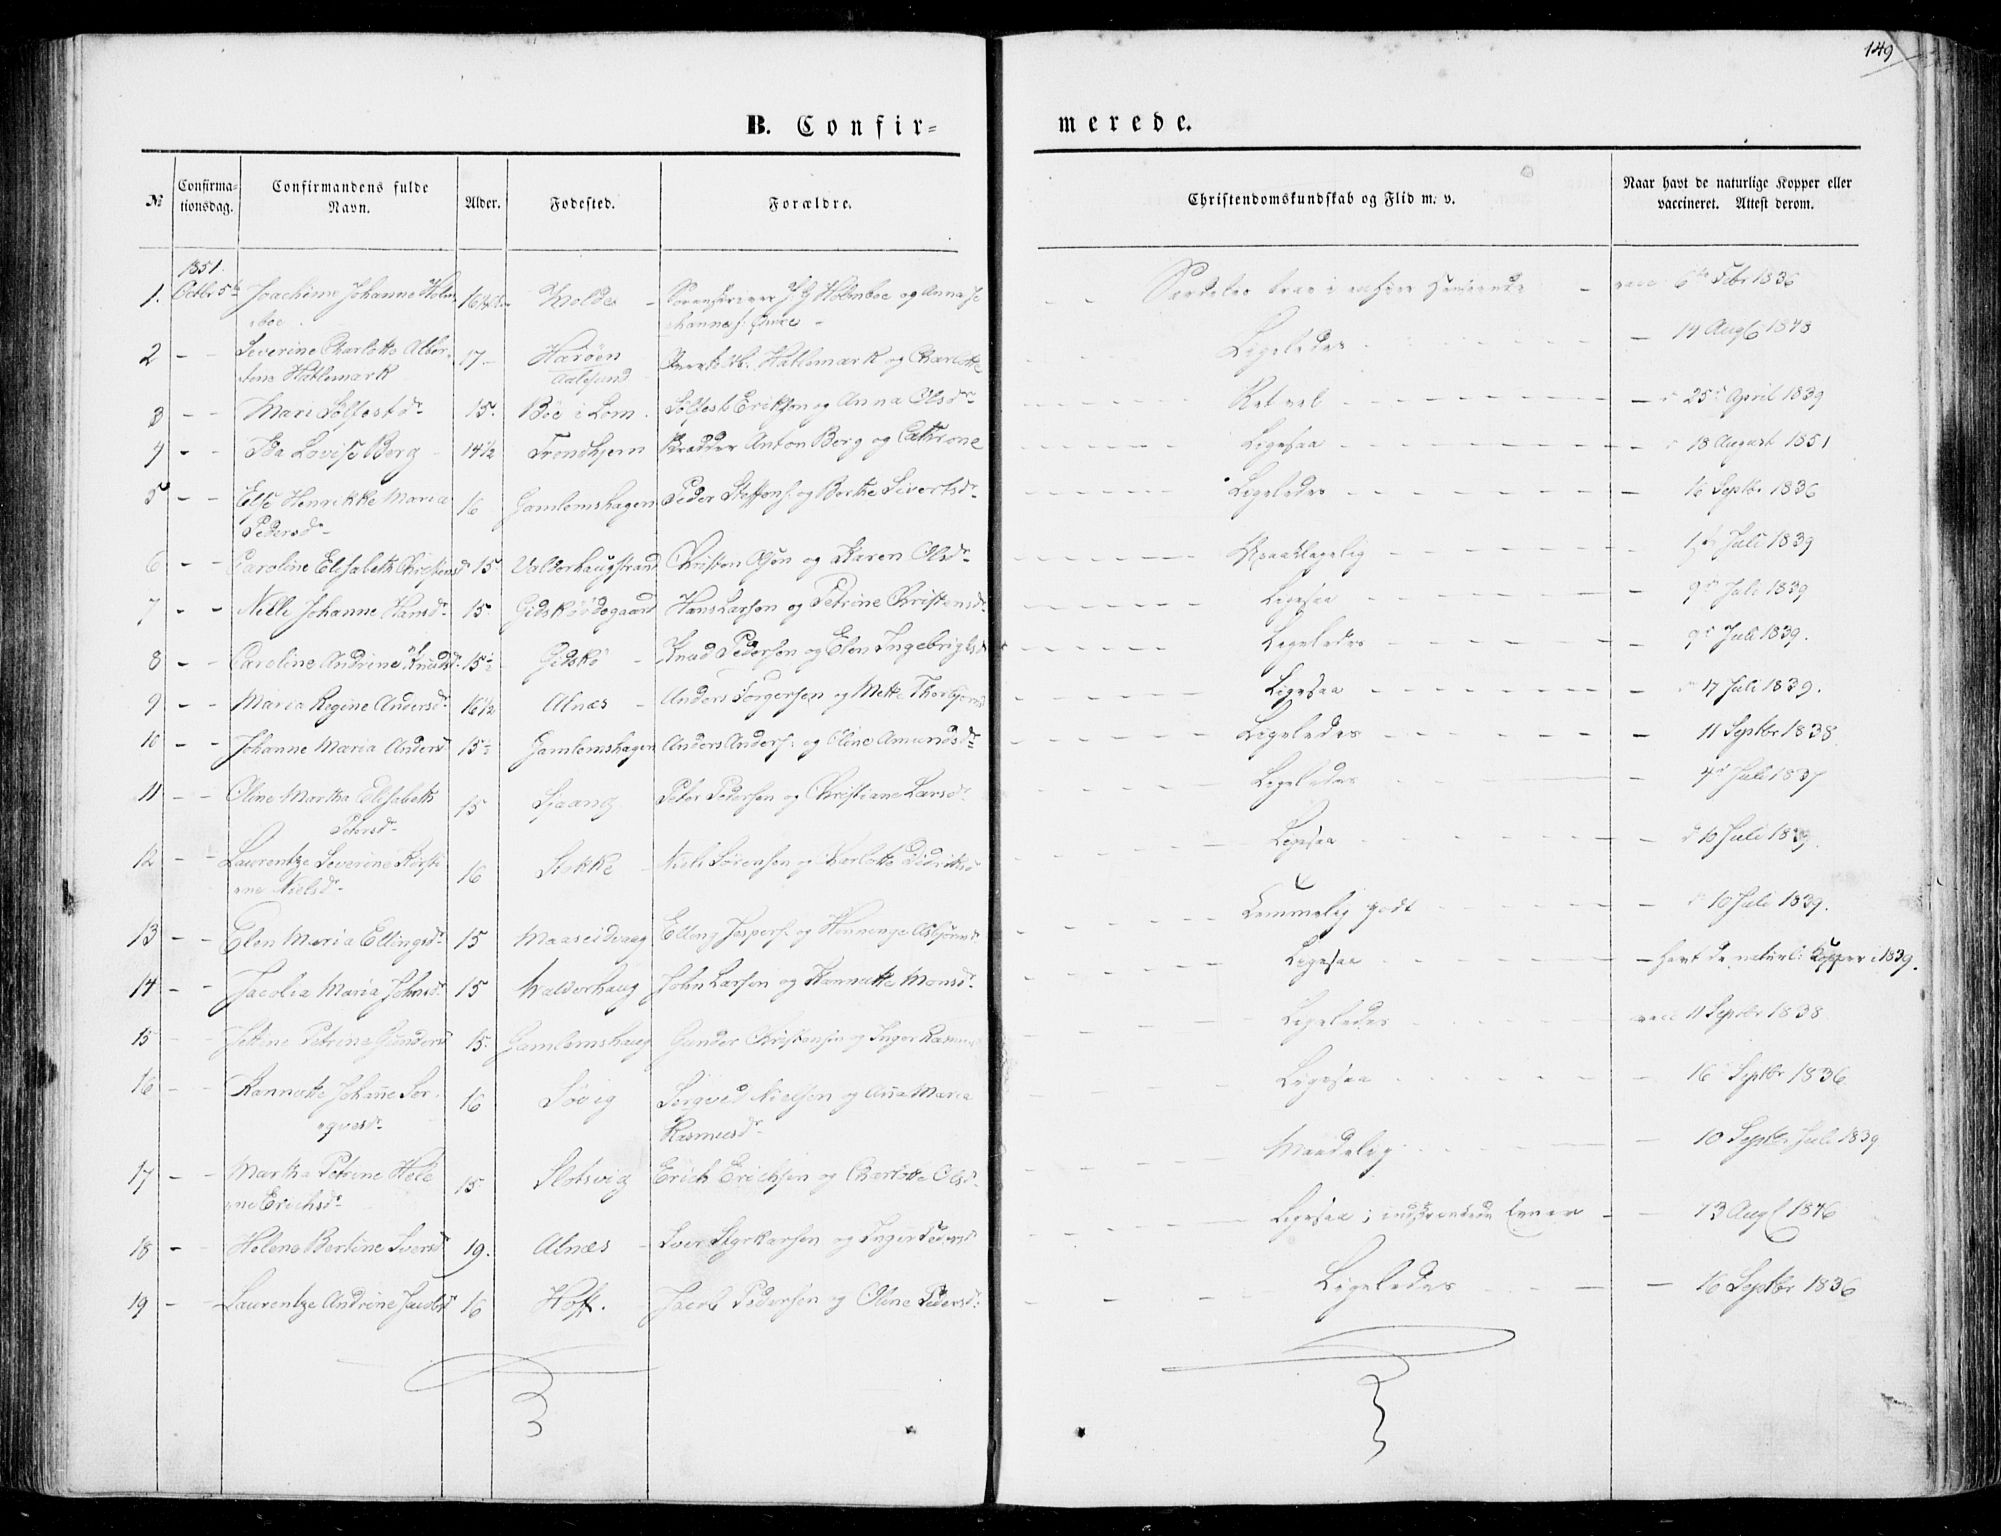 149
B. Confir=
merede.
№ Confirmationsdag. Confirmandens fulde Navn. Alder. Fodested. Forældre. Christendomskundskab og Flid m. v. Naar havt de naturlige Kopper eller vaccineret. Attest derom.
1851.
1. Octbr 5te Joachime Johanne Holm
boe 16 Molde Sorenskriver Holmboe og Anna Jo
hannes. Særdeles vacc. 6te Febr 1836
2 - - Severine Charlotte Alber-
tine Hatlemark 17 Harøen
Aalesund Hatlemark og Charlotte Ligeledes 14 Augs 1843
3 - - Mari Sølfestdr 15. Böe i Lom. Sølfest Erikson og Anna Olsdr Ret vel 25de April 1839
4 - - Ida Lovise Berg 14½ Trondhjem Anton Berg og Cathrine Ligesaa 18 August 1851
5 - - Else Henrikke Maria
Pedersdr 16 Gamlemshagen Peder Steffens. og Berthe Sivertsdr Ligeledes 16 Septbr 1836
6 - - Caroline Elisabeth Christensd 15 Valderhaugstrand Christen Olsen og Karen Olsdr Upaaklagelig Juli 1839
7 - - Nille Johanne Hansdr 15 Gidskøödegaard Hans Larsen og Petrine Christensdr Ligesaa 9de Juli 1839
8 - - Caroline Andrine Knudsdr 15 Gidskö Knud Pedersen og Elen Ingebrigtsdr Ligeledes 9de Juli 1839.
9 - - Maria Regine Andersdr 16½ Alnæs Anders Torgersen og Mette Thorbjørnsd Ligesaa 17 Juli 1839.
10 - - Johanne Maria Andersd 15 Gamlemshagen Anders Anders. og Oline Amundsdr Ligeledes 11 Septbr 1838.
11 - - Oline Martha Elisabeth
Petersdr 15 Peter Pedersen og Christiane Larsdr Ligeledes 4de Juli 1837
12 - - Laurentze Severine Kirsti
ne Nielsdr 16 Stokke Niels Sørensen og Charlotte Didriksd Ligesaa 10 Juli 1839.
13 - - Elen Maria Ellingsdr 15 Maaseidvaag Elling Jespers. og Henninge Asbjørnsd Temmelig godt 16 Juli 1839.
14 - - Jacobia Maria Johnsdr 15 Walderhaug John Larsen og Hannatte Monsdr Ligesaa - havt de naturl: Kopper i 1839.
15 - - Jettine Petrine Gundersd 15. Gamlemshaug Gunder Christensen og Inger Rasmusd Ligeledes vacc 11 Septbr 1838
16 - - Hannatte Johane Sør-
qvesdr 16 Søvig Sørqved Nielsen og Ana Maria
Rasmusdr Ligesaa 16 Septbr 1836
17 - - Martha Petrine Hele
ne Erichsdr 15 Slotsvig Erich Erichsen og Charlotte Olsd Maadelig 10 Juli 1839
18 - Helene Bertine Iversd 19. Alnæs Iver og Inger Pedersd Ligesaa; indskrænkede Evner 13 Augs 1846
19 - - Laurentze Andrine Jacobsd 16 Hoff. Jacob Pedersen og Oline Pedersdr Ligeledes 16 Septbr 1836